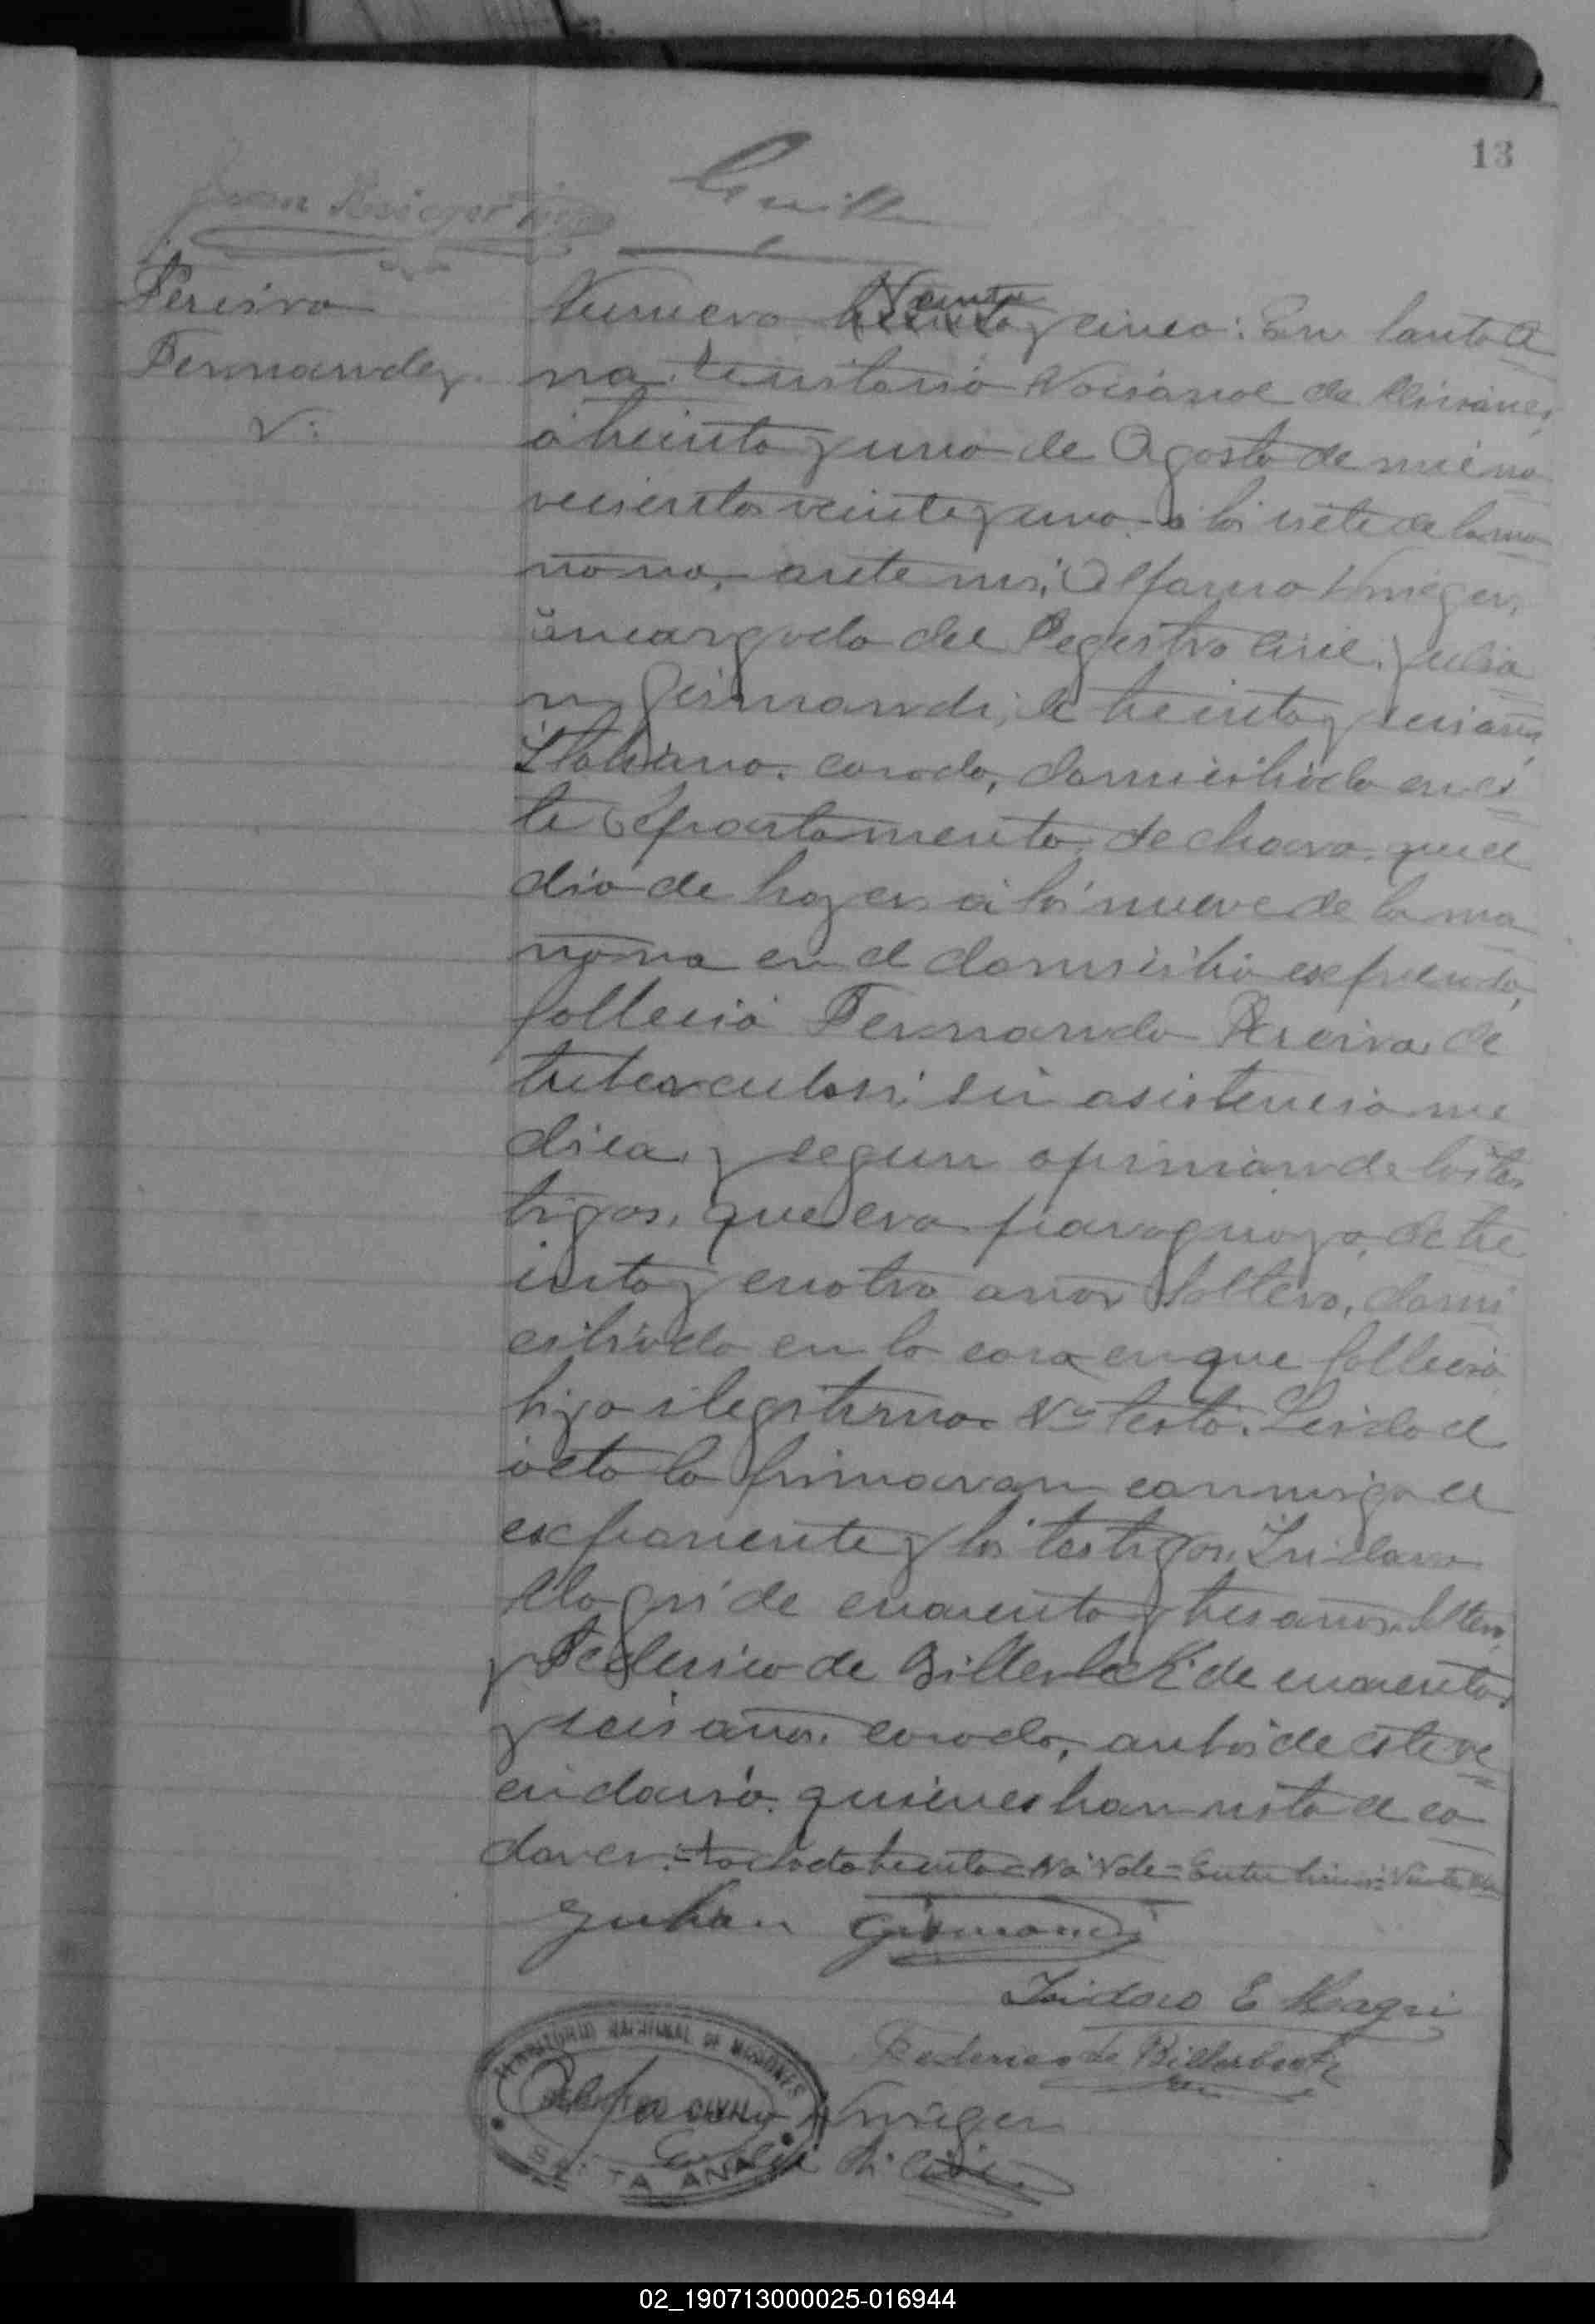 13
Pereira
Fernandez
V:
Numero treinta Veinte y cinco: En Santa A
na territorio Nacional de Misiones,
á treinta y uno de Agosto de mil no
vecientos veinte y uno á las siete de la ma
ñana, ante mi, Alfaro
encargado del Registro Civil, Julia
n Gismondi, de treinta y seis años,
Italiano, casado, domiciliado en es
te departamento, declaro, que el
dia de hoy á las nueve de la ma
ñana en el domicilio expresado,
falleció Fernando Pereira de
tuberculosis sin asistencia me
dica, y segun opinion de los tes
tigos, que era paraguayo, de tre
inta y cuatro años soltero, domi
ciliado en la casa en que falleció
hijo ilegitimo. No testó. Leido el
acta la firmaron conmigo el
exponente y los testigos, Isidoro
Magri de cuarenta y tres años, soltero,
y Federico de Billerbeck de cuarenta
y seis años, casado, ambos de este ve
cindario, quienes han visto el ca
daver.= Tachado treinta = No Vale = Entre lineas = Veinte Vale
Julian Gismondi
Isidoro E Magri
Federico de Billerbeck
TERRITORIO NACIONAL DE MISIONES
REGISTRO CIVIL
SANTA ANA
Alfaro